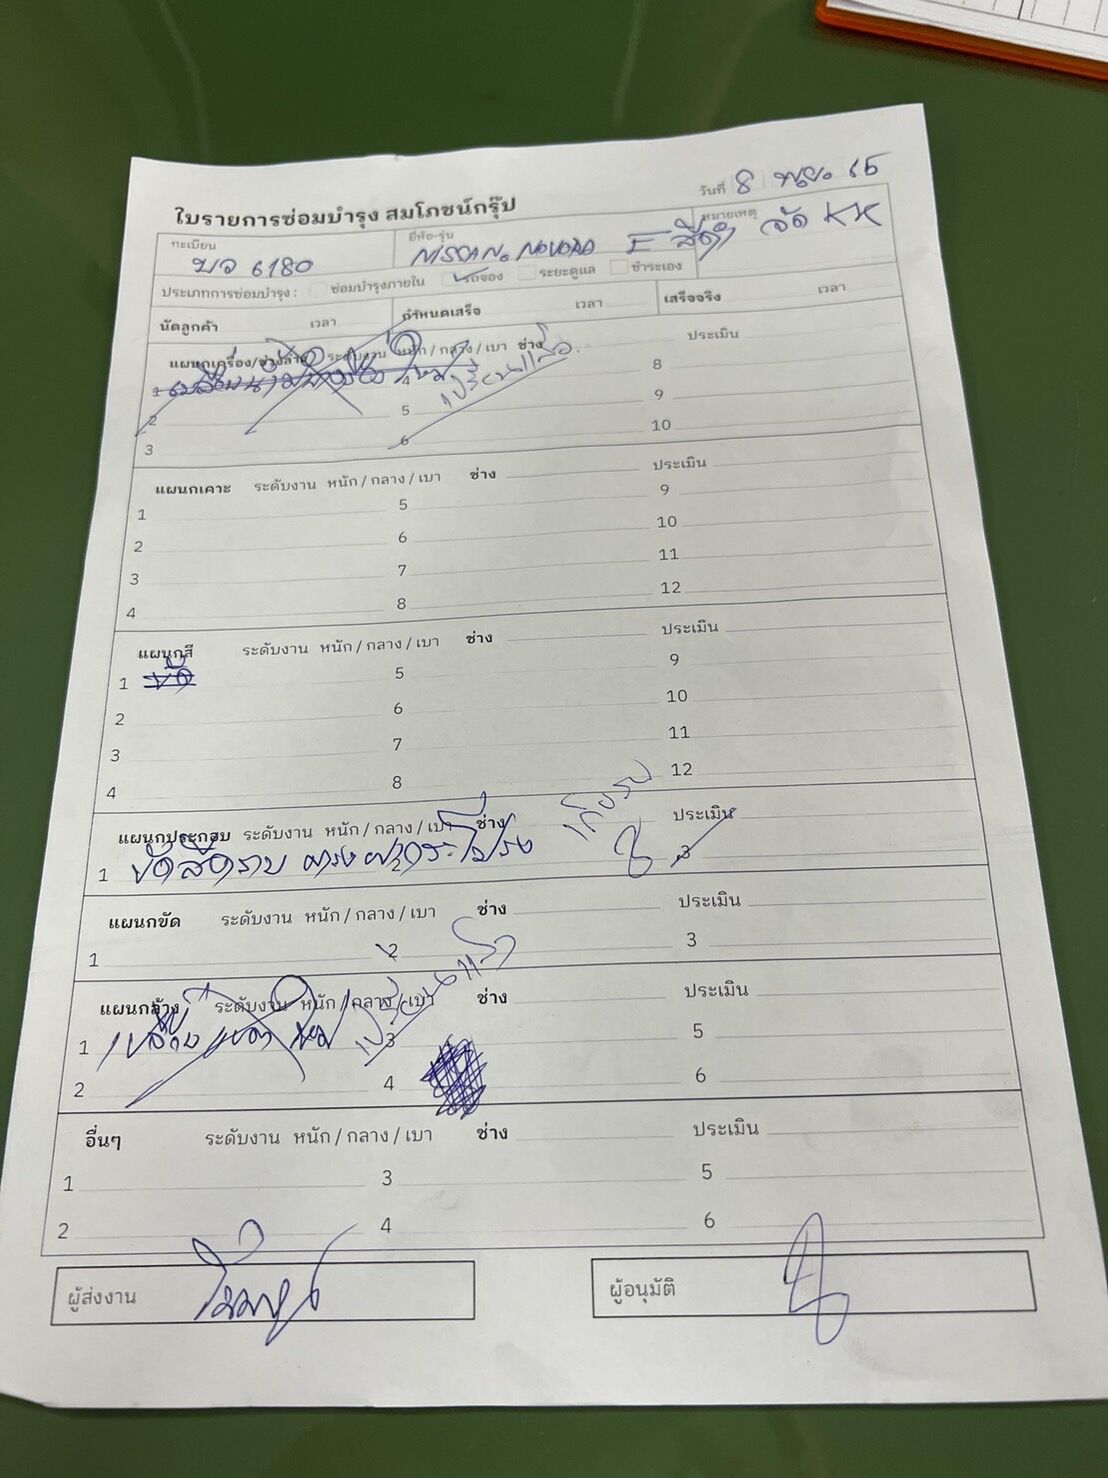 วันที่ 8 พ.ย. 65
ใบรายการซ่อมบำรุง สมโภชน์กรุ๊ป
ทะเบียน ยี่ห้อ-รุ่น หมายเหตุ
บจ 6180 สีดำ จัด KK
ประเภทการซ่อมบำรุง : ซ่อมบำรุงภายใน รถจอง ระยะดูแล ชำระเอง
นัดลูกค้า เวลา กำหนดเสร็จ เวลา เสร็จจริง เวลา
แผนกเครื่อง/ช่างล้าง ระดับงาน หนัก / กลาง / เบา ช่าง ประเมิน
1 4 8
2 5 9
3 6 10
แผนกเคาะ ระดับงาน หนัก / กลาง / เบา ช่าง ประเมิน
1 5 9
2 6 10
3 7 11
4 8 12
แผนกสี ระดับงาน หนัก / กลาง / เบา ช่าง ประเมิน
1 5 9
2 6 10
3 7 11
4 8 12
แผนกประกอบ ระดับงาน หนัก / กลาง / เบา ช่าง ประเมิน
1 2 กระโปรง 3
แผนกขัด ระดับงาน หนัก / กลาง / เบา ช่าง ประเมิน
1 2 3
แผนกล้าง ระดับงาน หนัก / กลาง / เบา ช่าง ประเมิน
1 3 5
2 4 6
อื่นๆ ระดับงาน หนัก / กลาง / เบา ช่าง ประเมิน
1 3 5
2 4 6
ผู้ส่งงาน ผู้อนุมัติ